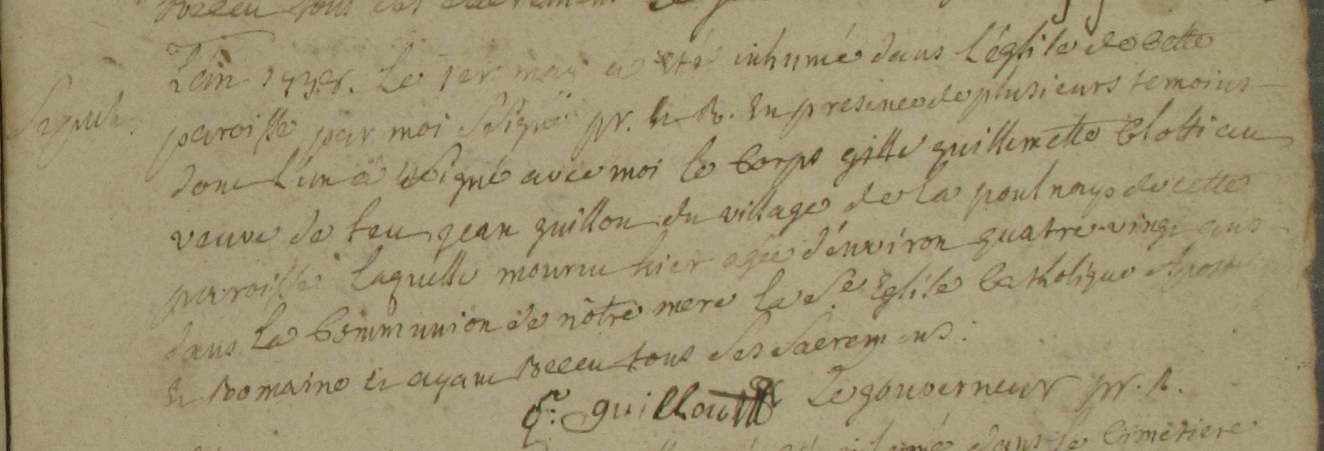 Receu tous ses sacremens
L'an 1738. Le 1er may a été inhumé dans l'église de cette
Sepult. paroisse par moi Soësigné pr. & R. En presence de plusieurs temoins
dont l'un a Signé avec moi le Corps gille guillemette blottiau
veuve de feu jean guillou du village de la poulnays de cette
paroisse laquelle mouru hier agée d'environ quatre-vingt ans
dans la Communion de nôtre mere la Ste Eglise Catholique Apost
& Romaine et ayant Receu tous ses Sacremens.
guillou Le gouverneur pr. R.
inhumé dans le Cimetiere